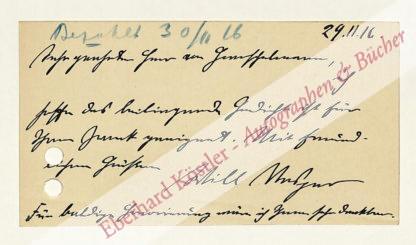 Bezahlt 30/11 16
29.11.16
Sehr geehrter Herr von
ich
hoffe das beiliegende Gedicht ist für
Ihren Zweck geeignet. Mit freund-
lichen Grüßen
Will Vesper
Für baldige Honorierung wäre ich Ihnen sehr dankbar.
Eberhard Köstler - Autographen & Bücher